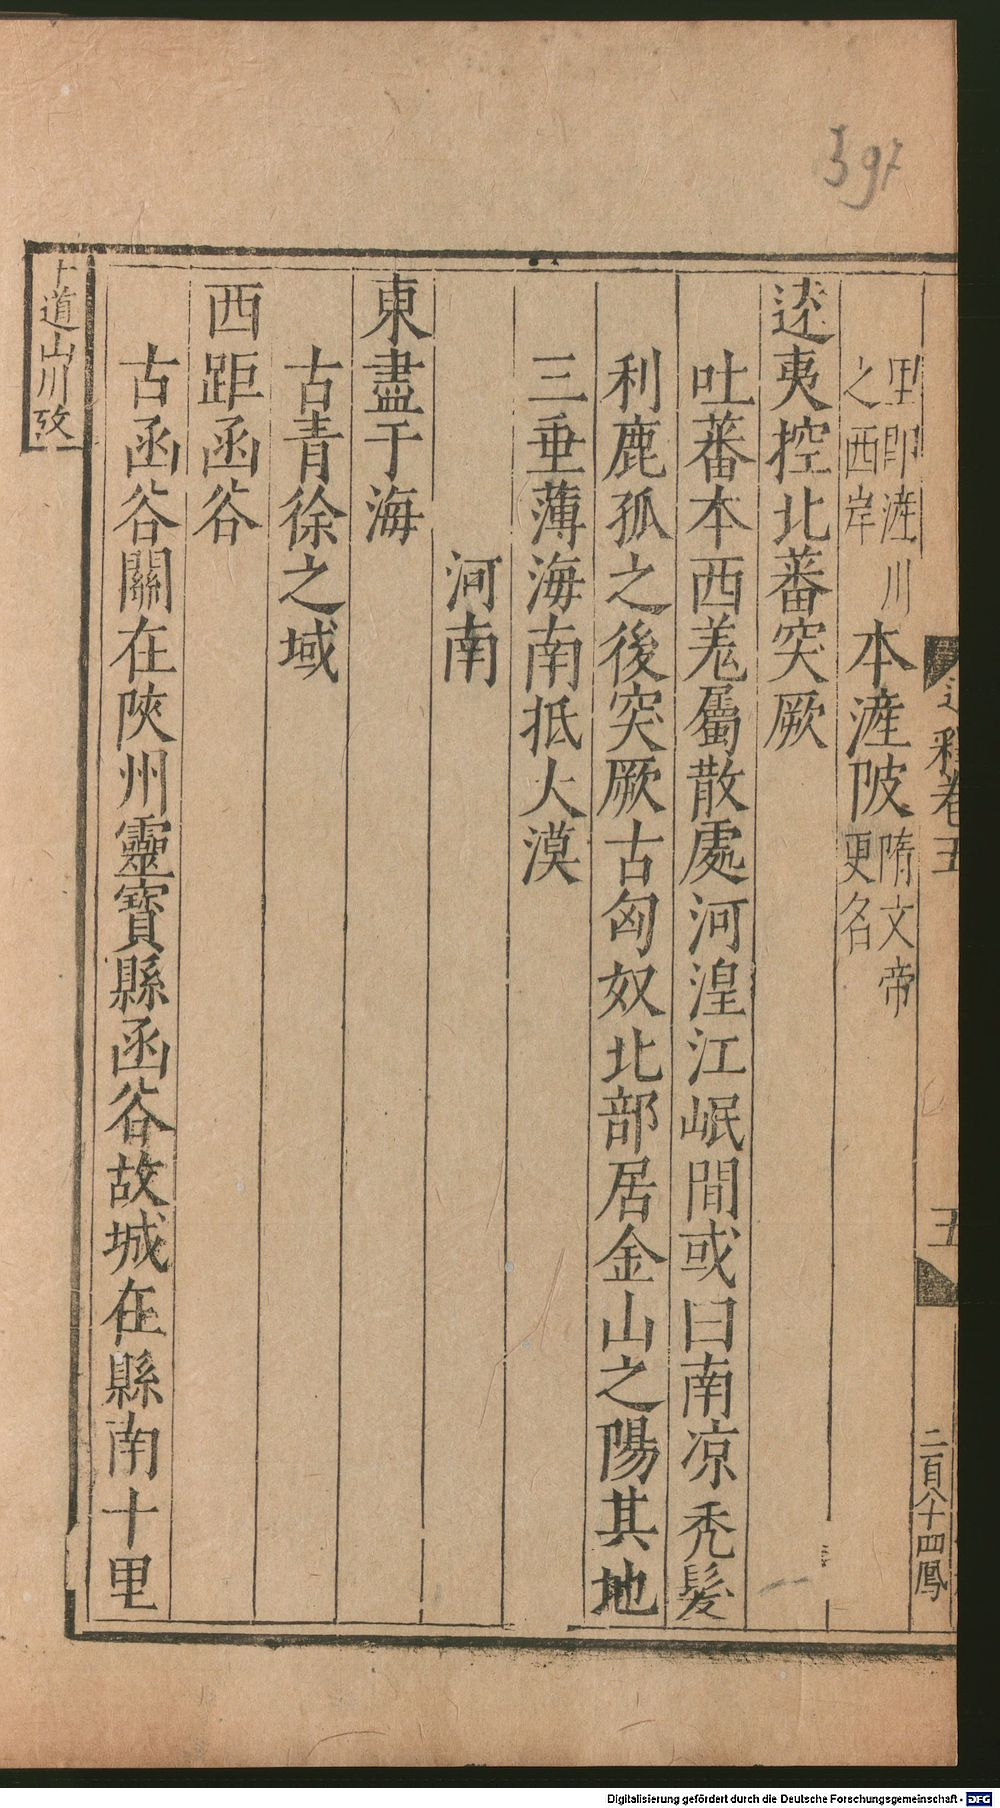 397
通釋卷五
五
二百八十四鳳
即滻川
之西岸
本滻陂
隋文帝
更名
逺夷控北蕃突厥
吐蕃本西羗屬散處河湟江岷間或曰南凉秃髮
利鹿孤之後突厥古匈奴北部居金山之陽其地
三垂薄海南抵大漠
河南
東盡于海
古青徐之域
西距函谷
古函谷關在陜州靈寶縣函谷故城在縣南十里
十道山川攷
Digitalisierung gefördert durch die Deutsche Forschungsgemeinschaft - DFG